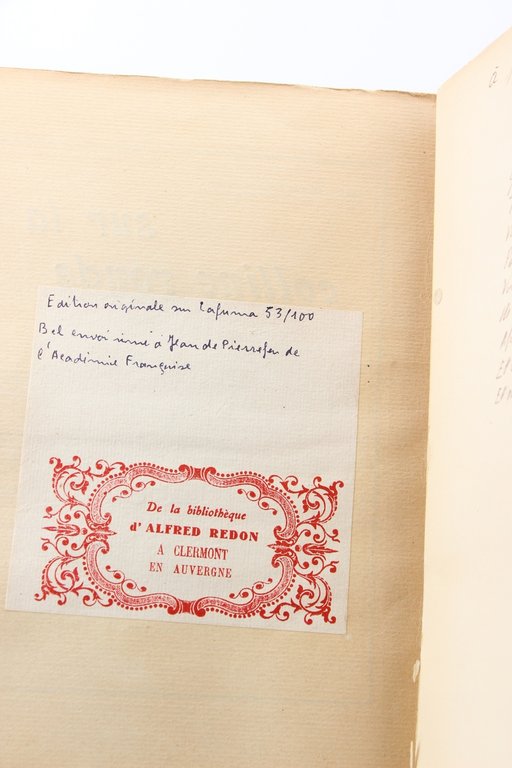 Edition originale sur Lafuma 53/100
Bel envoi rimé à Jean de Pierrefeu de
l'Académie Française
De la bibliothèque
d'ALFRED REDON
A CLERMONT
EN AUVERGNE
à